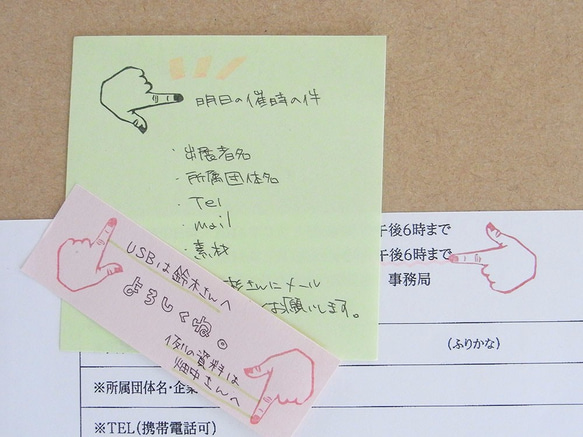 明日の催時の件
・出展者名
・所属団体名
・Tel
・mail
・素材
さんにメール
お願いします。
USBは鈴木さんへ
よろしくね。
例の資料は
畑中さんへ
午後6時まで
午後6時まで
事務局
(ふりかな)
※所属団体名・企業
※TEL(携帯電話可)